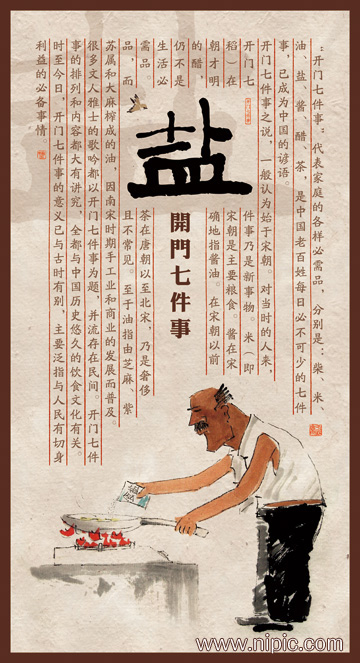 ：开门七件事：代表家庭的各样必需品，分别是：柴、米、
油、盐、酱、醋、茶，是中国老百姓每日必不可少的七件
事，已成为中国的谚语。
开门七件事之说，一般认为始于宋朝。对当时的人来，
开门七
件事乃是新事物。米（即
稻）在
宋朝是主要粮食。酱在宋
朝才明
确地指酱油。在宋朝以前
的醋，
仍不是
生活必
需品。
茶在唐朝以至北宋，乃是奢侈
品，而
且不常见。至于油指由芝麻、紫
苏属和大麻榨成的油，因南宋时期手工业和商业的发展而普及。
很多文人雅士的歌吟都以开门七件事为题，并流存在民间。开门七件
事的排列和内容都大有讲究，全都与中国历史悠久的饮食文化有关。
时至今日，开门七件事的意义已与古时有别，主要泛指与人民有切身
利益的必备事情
盐
開門七件事
www.nipic.com